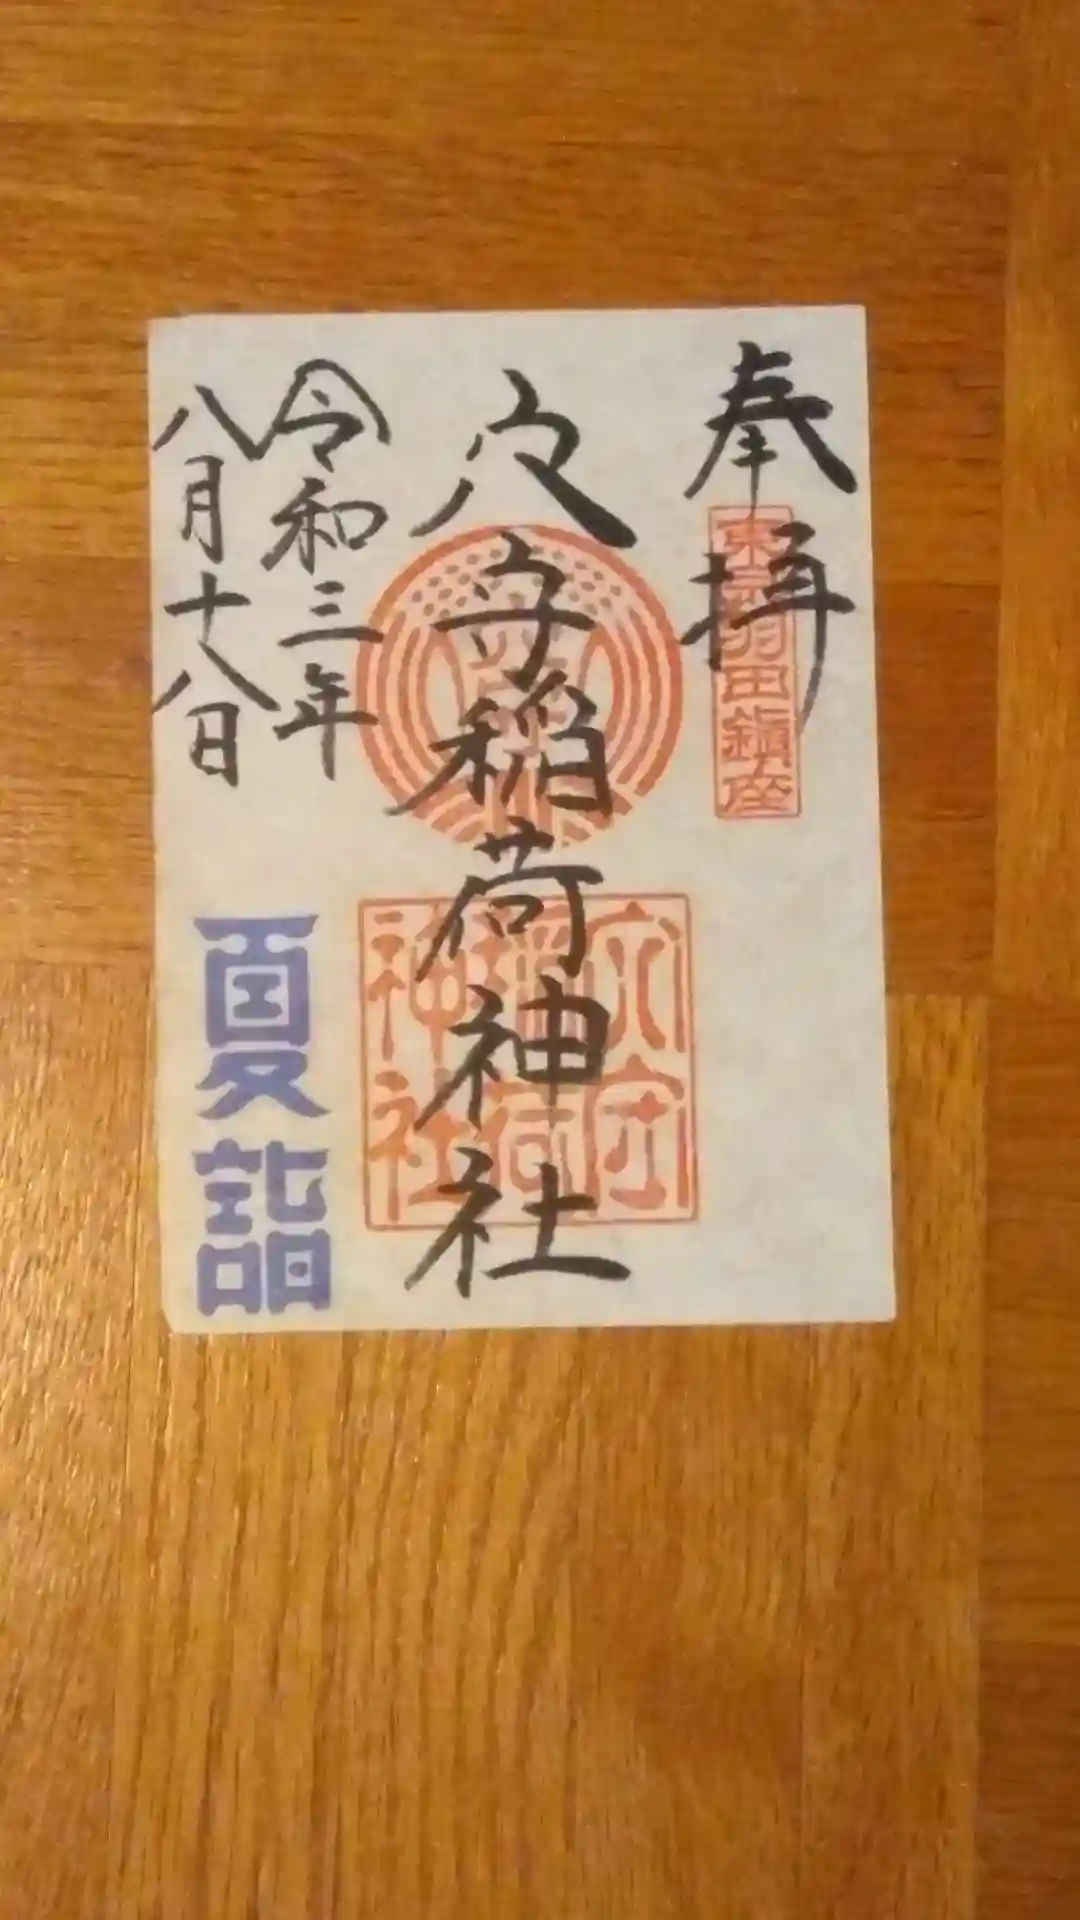 奉拝
東京羽田鎮座
穴守稲荷神社
穴守
稲荷
神社
令和三年
八月十八日
夏詣